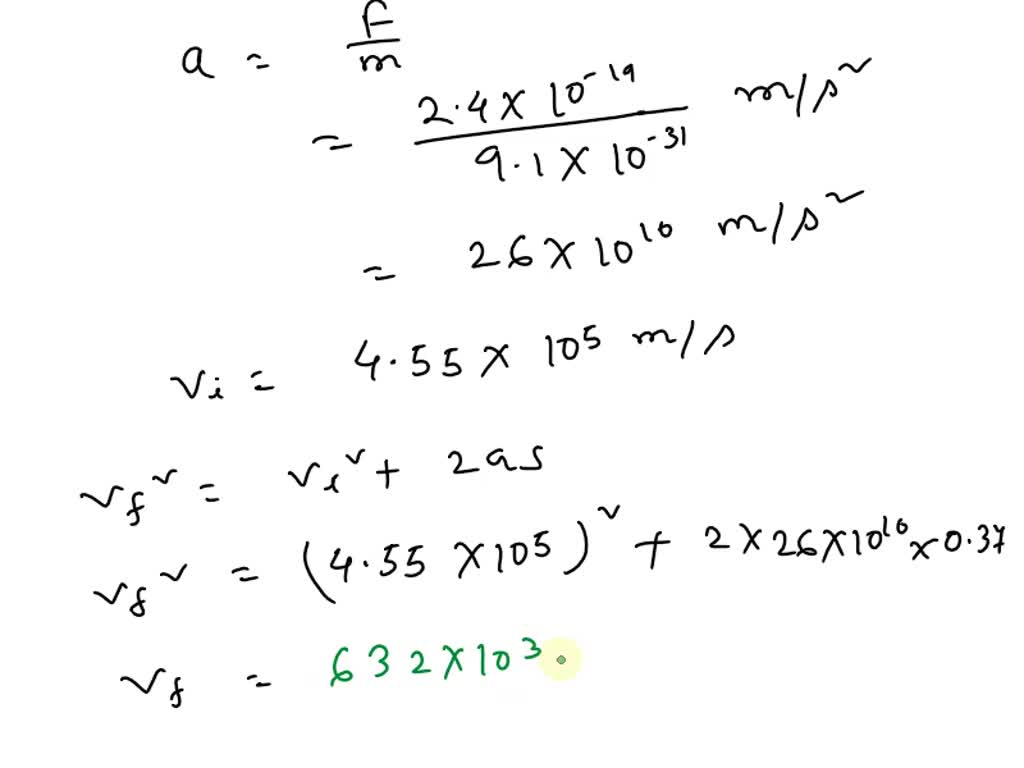 a = F/m
= 2.4 × 10⁻¹⁹ / 9.1 × 10⁻³¹ m/s²
= 26 × 10¹⁰ m/s²
vᵢ = 4.55 × 10⁵ m/s
v_f² = vᵢ² + 2as
v_f² = (4.55 × 10⁵)² + 2 × 26 × 10¹⁰ × 0.37
v_f = 632 × 10³